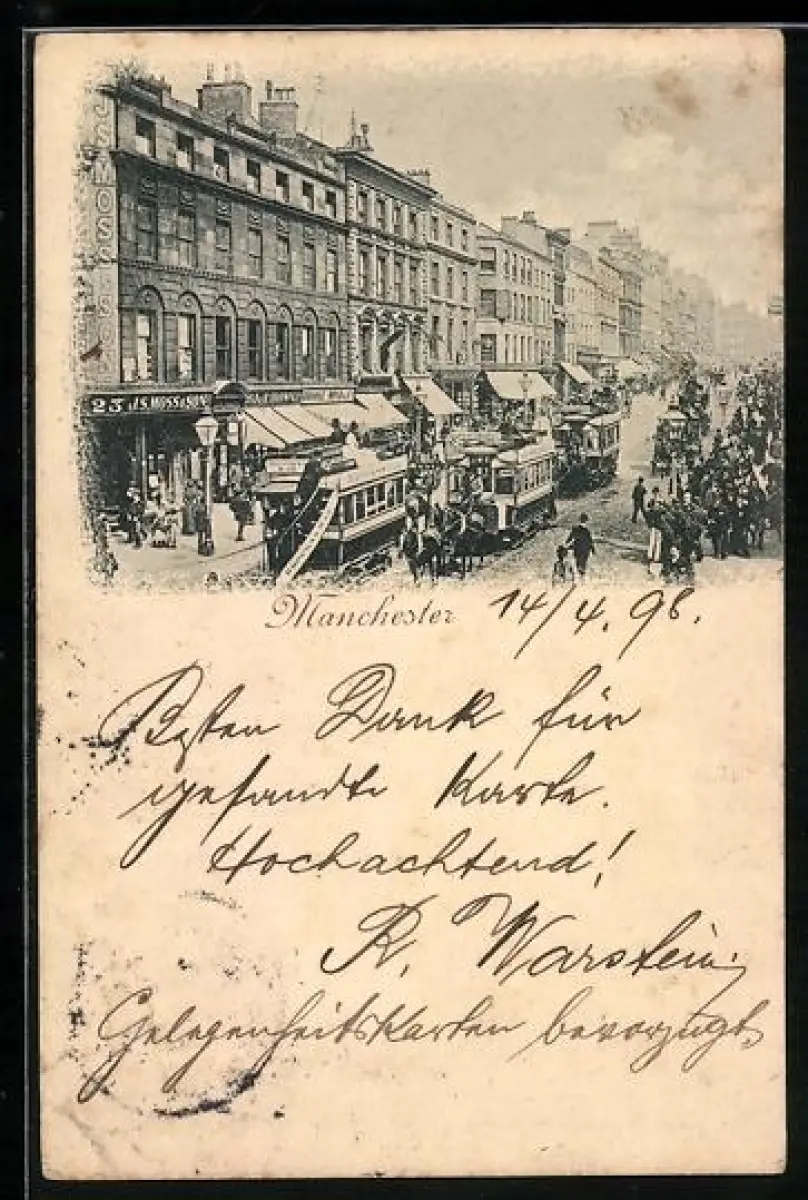 JS MOSS & SON
23 J.S. MOSS & SON
Manchester 14/4.98.
Besten Dank für
gesandte Karte.
Hochachtend!
R. Warstein.
Gelegenheitskarten bevorzugt.